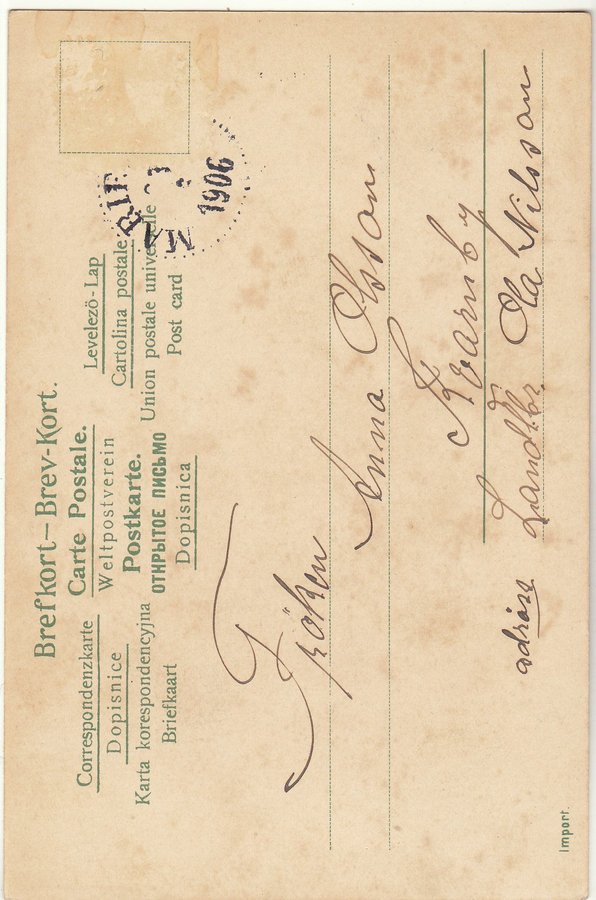 Brefkort—Brev-Kort.
Correspondenzkarte Carte Postale. Levelezö-Lap
Dopisnice Weltpostverein Cartolina postale
Karta korespondencyjna Postkarte. Union postale universelle
Briefkaart ОТКРЫТОЕ ПИСЬМО Post card
Dopisnica
MARIE
1906
Fröken
Anna Olsson
Kvarnby
adräss Landtbr. Ola Nilsson
Import.